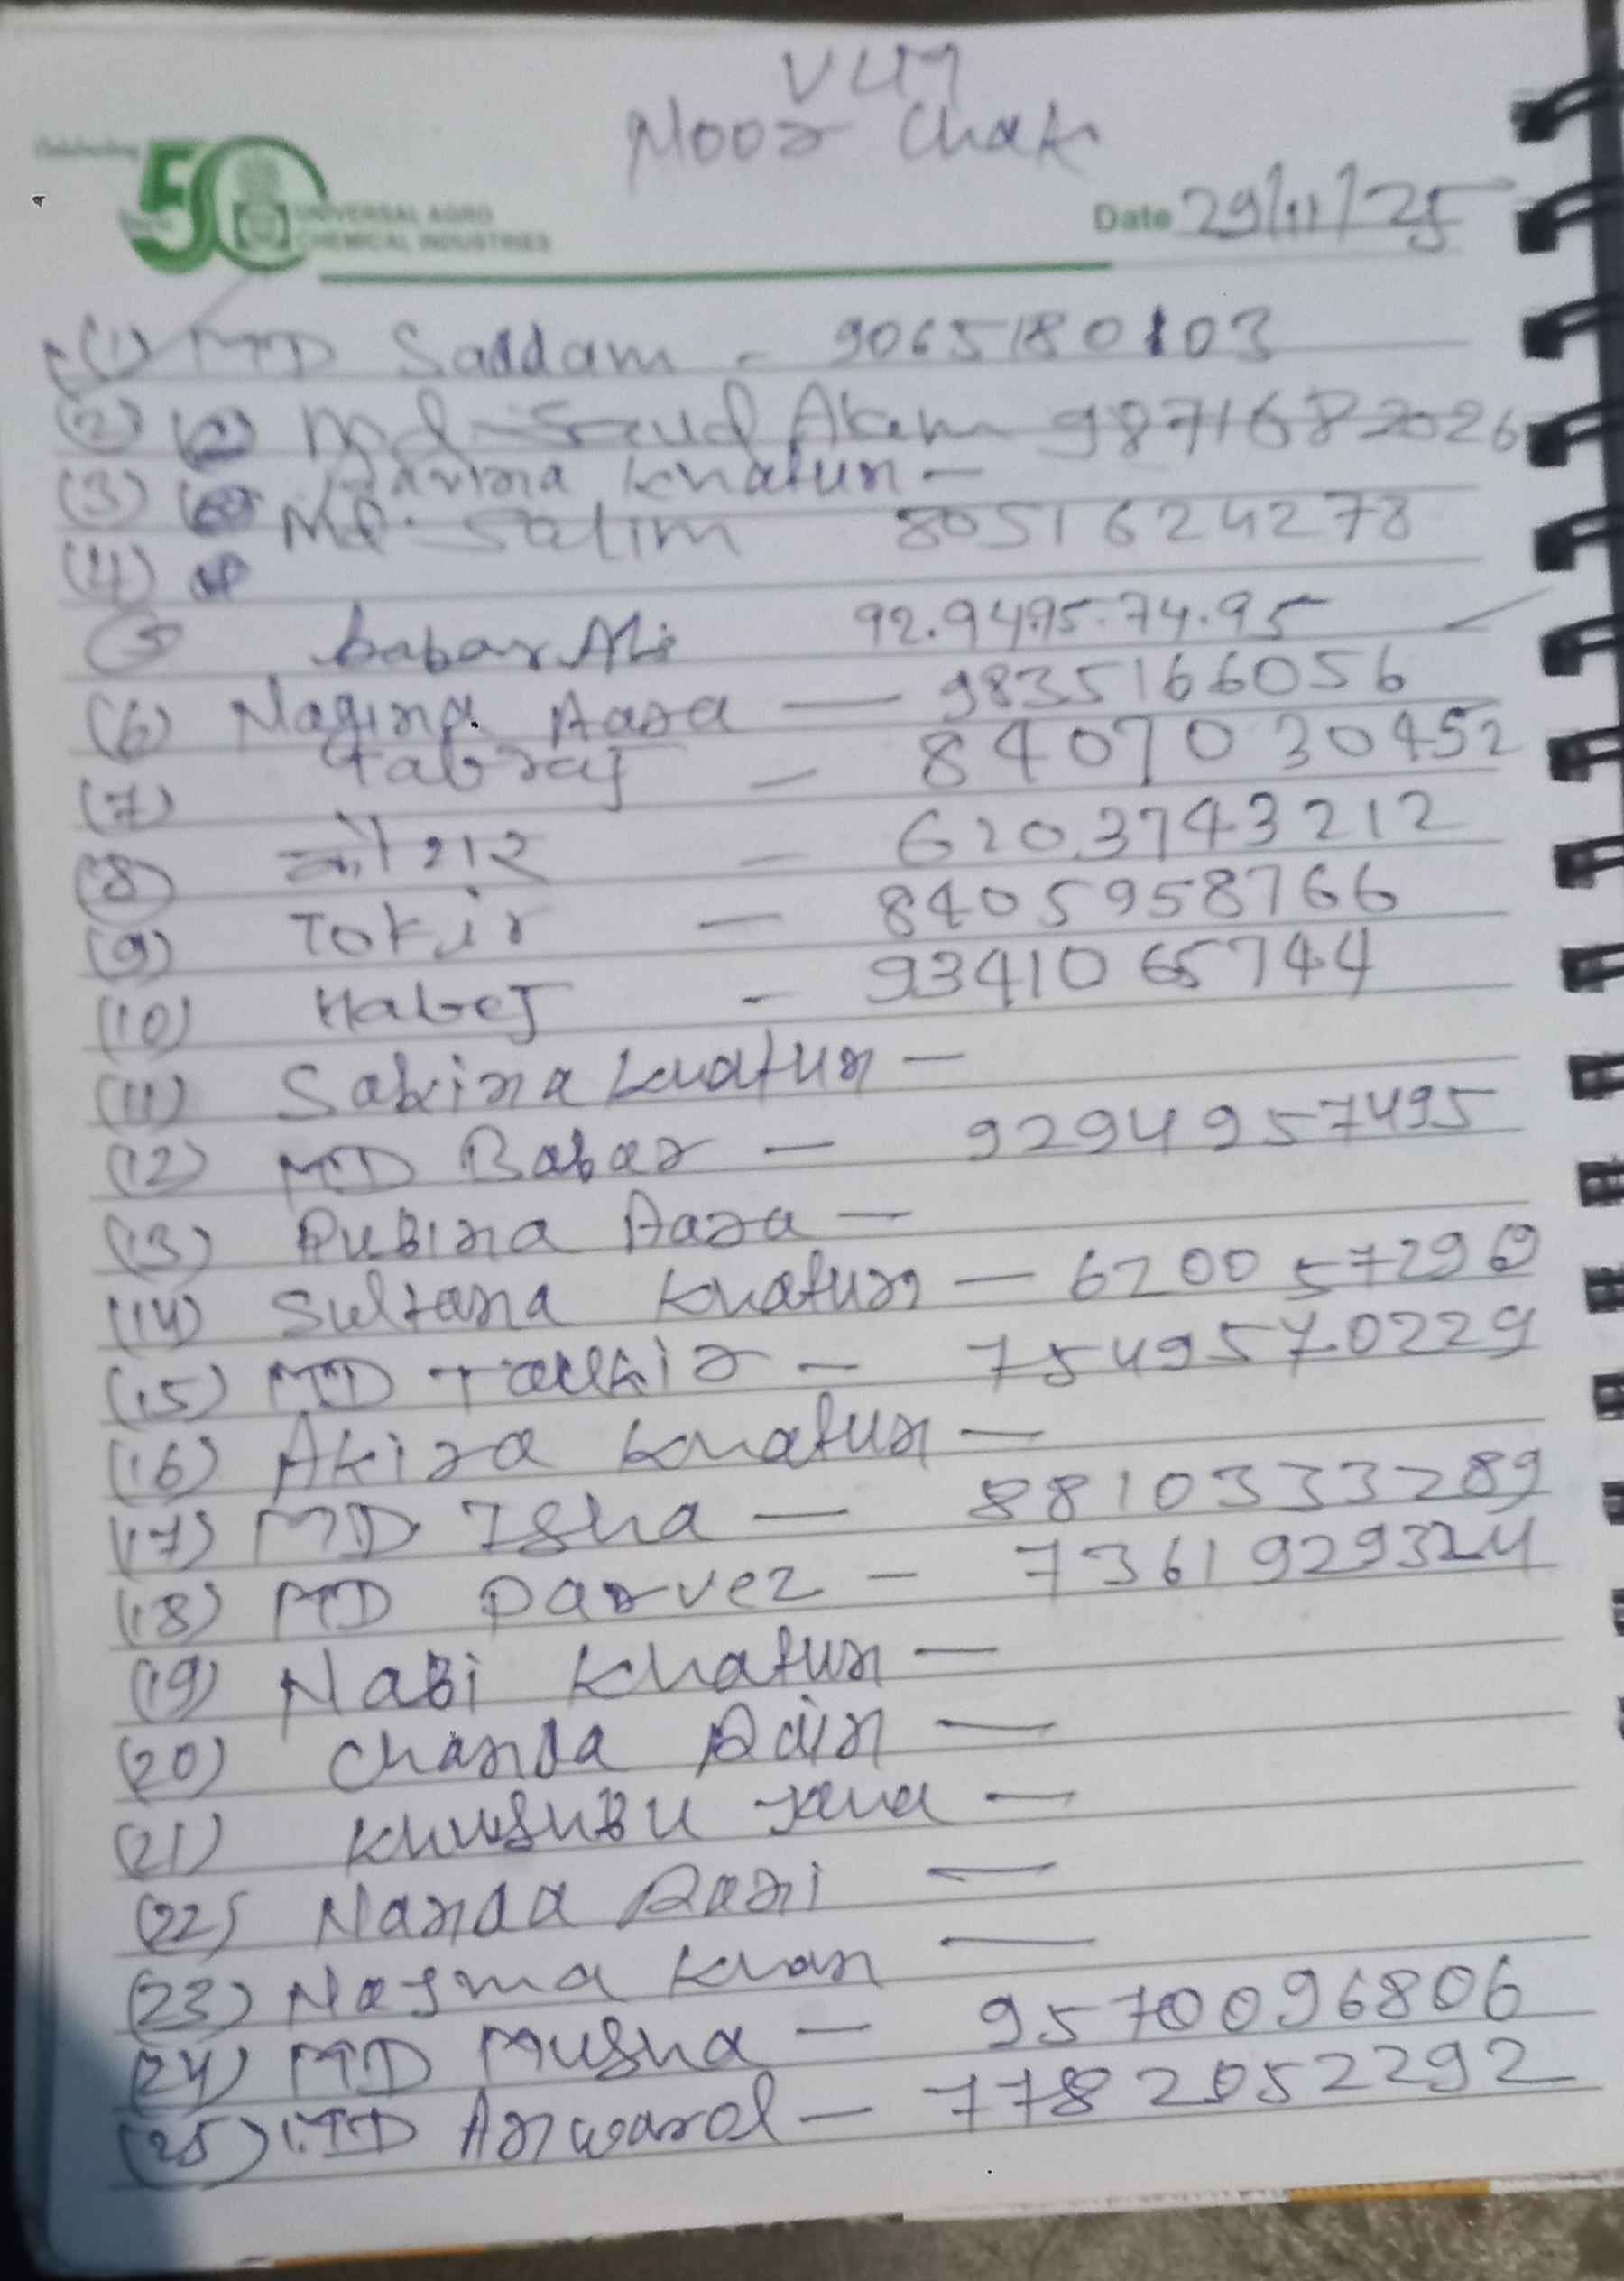 Noor Chak
Celebrating
50
UNIVERSAL AGRO
CHEMICAL INDUSTRIES
Date 29/11/25
(1) MD Saddam - 9065180103
(2) Md 9871682026
(3) Khatun -
Md. Salim 8051624278
(4)
(5) babar Ali 92.9495.74.95
(6) Nagina Aara — 9835166056
(7) Tabraj - 8407030452
(8) कौशर - 6203743212
(9) Tokir - 8405958766
(10) Habej - 9341065744
(11) Sakina Khatun -
(12) MD Babar - 9294957495
(13) Rubina Aara -
(14) Sultana Khatun -
(15) MD Taukir - 7549570229
(16) Akira Khatun -
(17) MD Isha - 8810333289
(18) MD Parvez - 7361929324
(19) Nabi Khatun -
(20) Chanda -
(21) Khushbu -
(22) Nanda Rani -
(23) Najma Khan -
(24) MD Musha - 9570096806
(25) MD - 7782052292